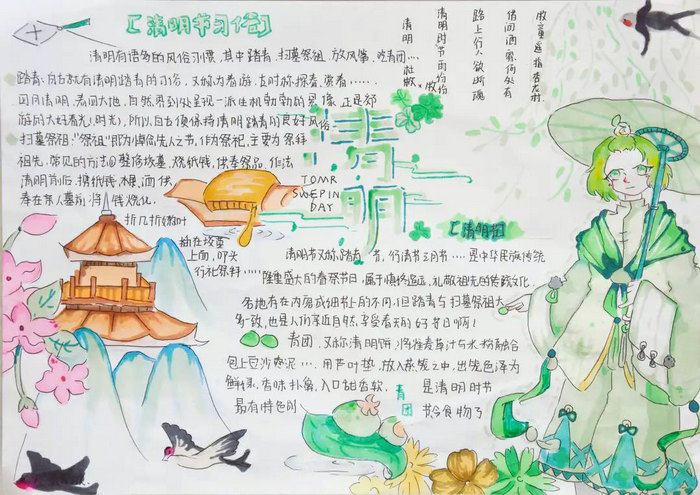 【清明节习俗】
清明有语多的风俗习惯,其中踏青、扫墓祭祖、放风筝、吃青团…
踏青:自古就有清明踏青的习俗,又称为春游,古时称探春、寻春……
四月清明,春回大地,自然界到处呈现一派生机勃勃的景像,正是郊
游的大好春光(时光),所以自古便保持清明踏青的良好风俗
扫墓祭祖:"祭祖"即为悼念先人之节,作为祭祀,主要为祭拜
祖先,常见的方法
整修坟墓,烧纸钱,供奉祭品,作法
清明前后,携纸钱,水果,酒供
奉在亲人墓前,将纸钱焚化,
折几折嫩叶
插在坟墓
上面,叩头
行礼祭拜……
清明
杜牧
清明时节雨纷纷
路上行人欲断魂
借问酒家何处有
牧童遥指杏花村
清明
TOMB
SWEPIN
DAY
【清明节】
清明节又称踏青节、
三月节……是中华民族传统
隆重盛大的春祭节日,属于慎终追远、礼敬祖先的传统文化,
各地有在内容或细节上的不同,但踏青与扫墓祭祖大
多一致,也是人们亲近自然,享受春天的好节日啊!
青团,又称清明饼,将艾草汁与水粉融合
包上豆沙枣泥…,用芦叶垫,放入蒸笼之中,出笼色泽为
鲜绿,香味扑鼻,入口甜香软,是清明时节
最有特色的
青团
节令食物了